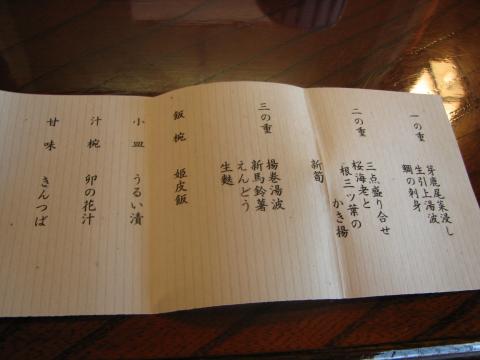 一の重
芽鹿尾菜浸し
生引上湯波
鯛の刺身
二の重
三点盛り合せ
桜海老と
根三ツ葉の
かき揚
新筍
三の重
揚巻湯波
新馬鈴薯
えんどう
生麩
飯椀 姫皮飯
小皿 うるい漬
汁椀 卯の花汁
甘味 きんつば